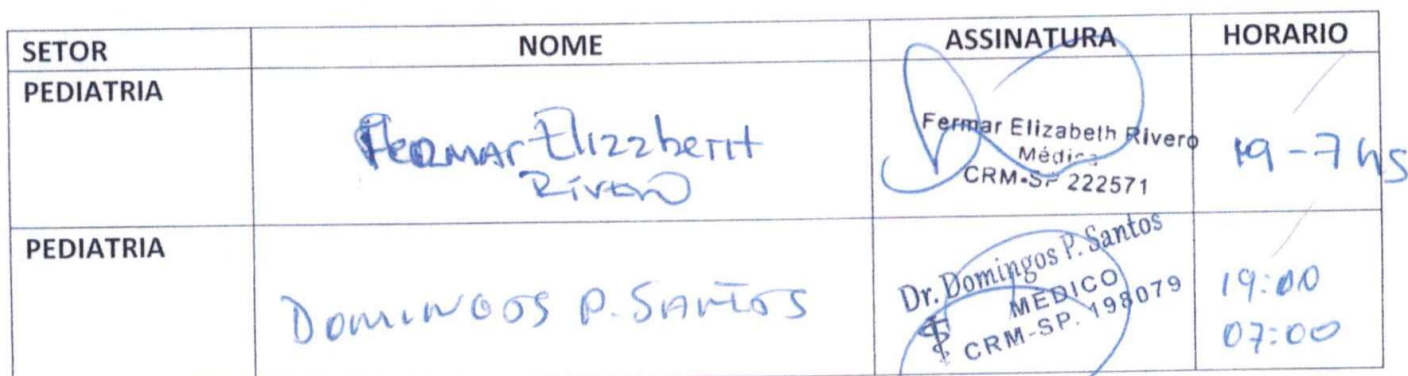 SETOR NOME ASSINATURA HORARIO
PEDIATRIA
Fermar Elizabeth
Rivero
Fermar Elizabeth Rivero
Médica
CRM-SP 222571
19-7hs
PEDIATRIA
DOMINGOS P. SANTOS
Dr. Domingos P. Santos
MEDICO
CRM-SP. 198079
19:00
07:00